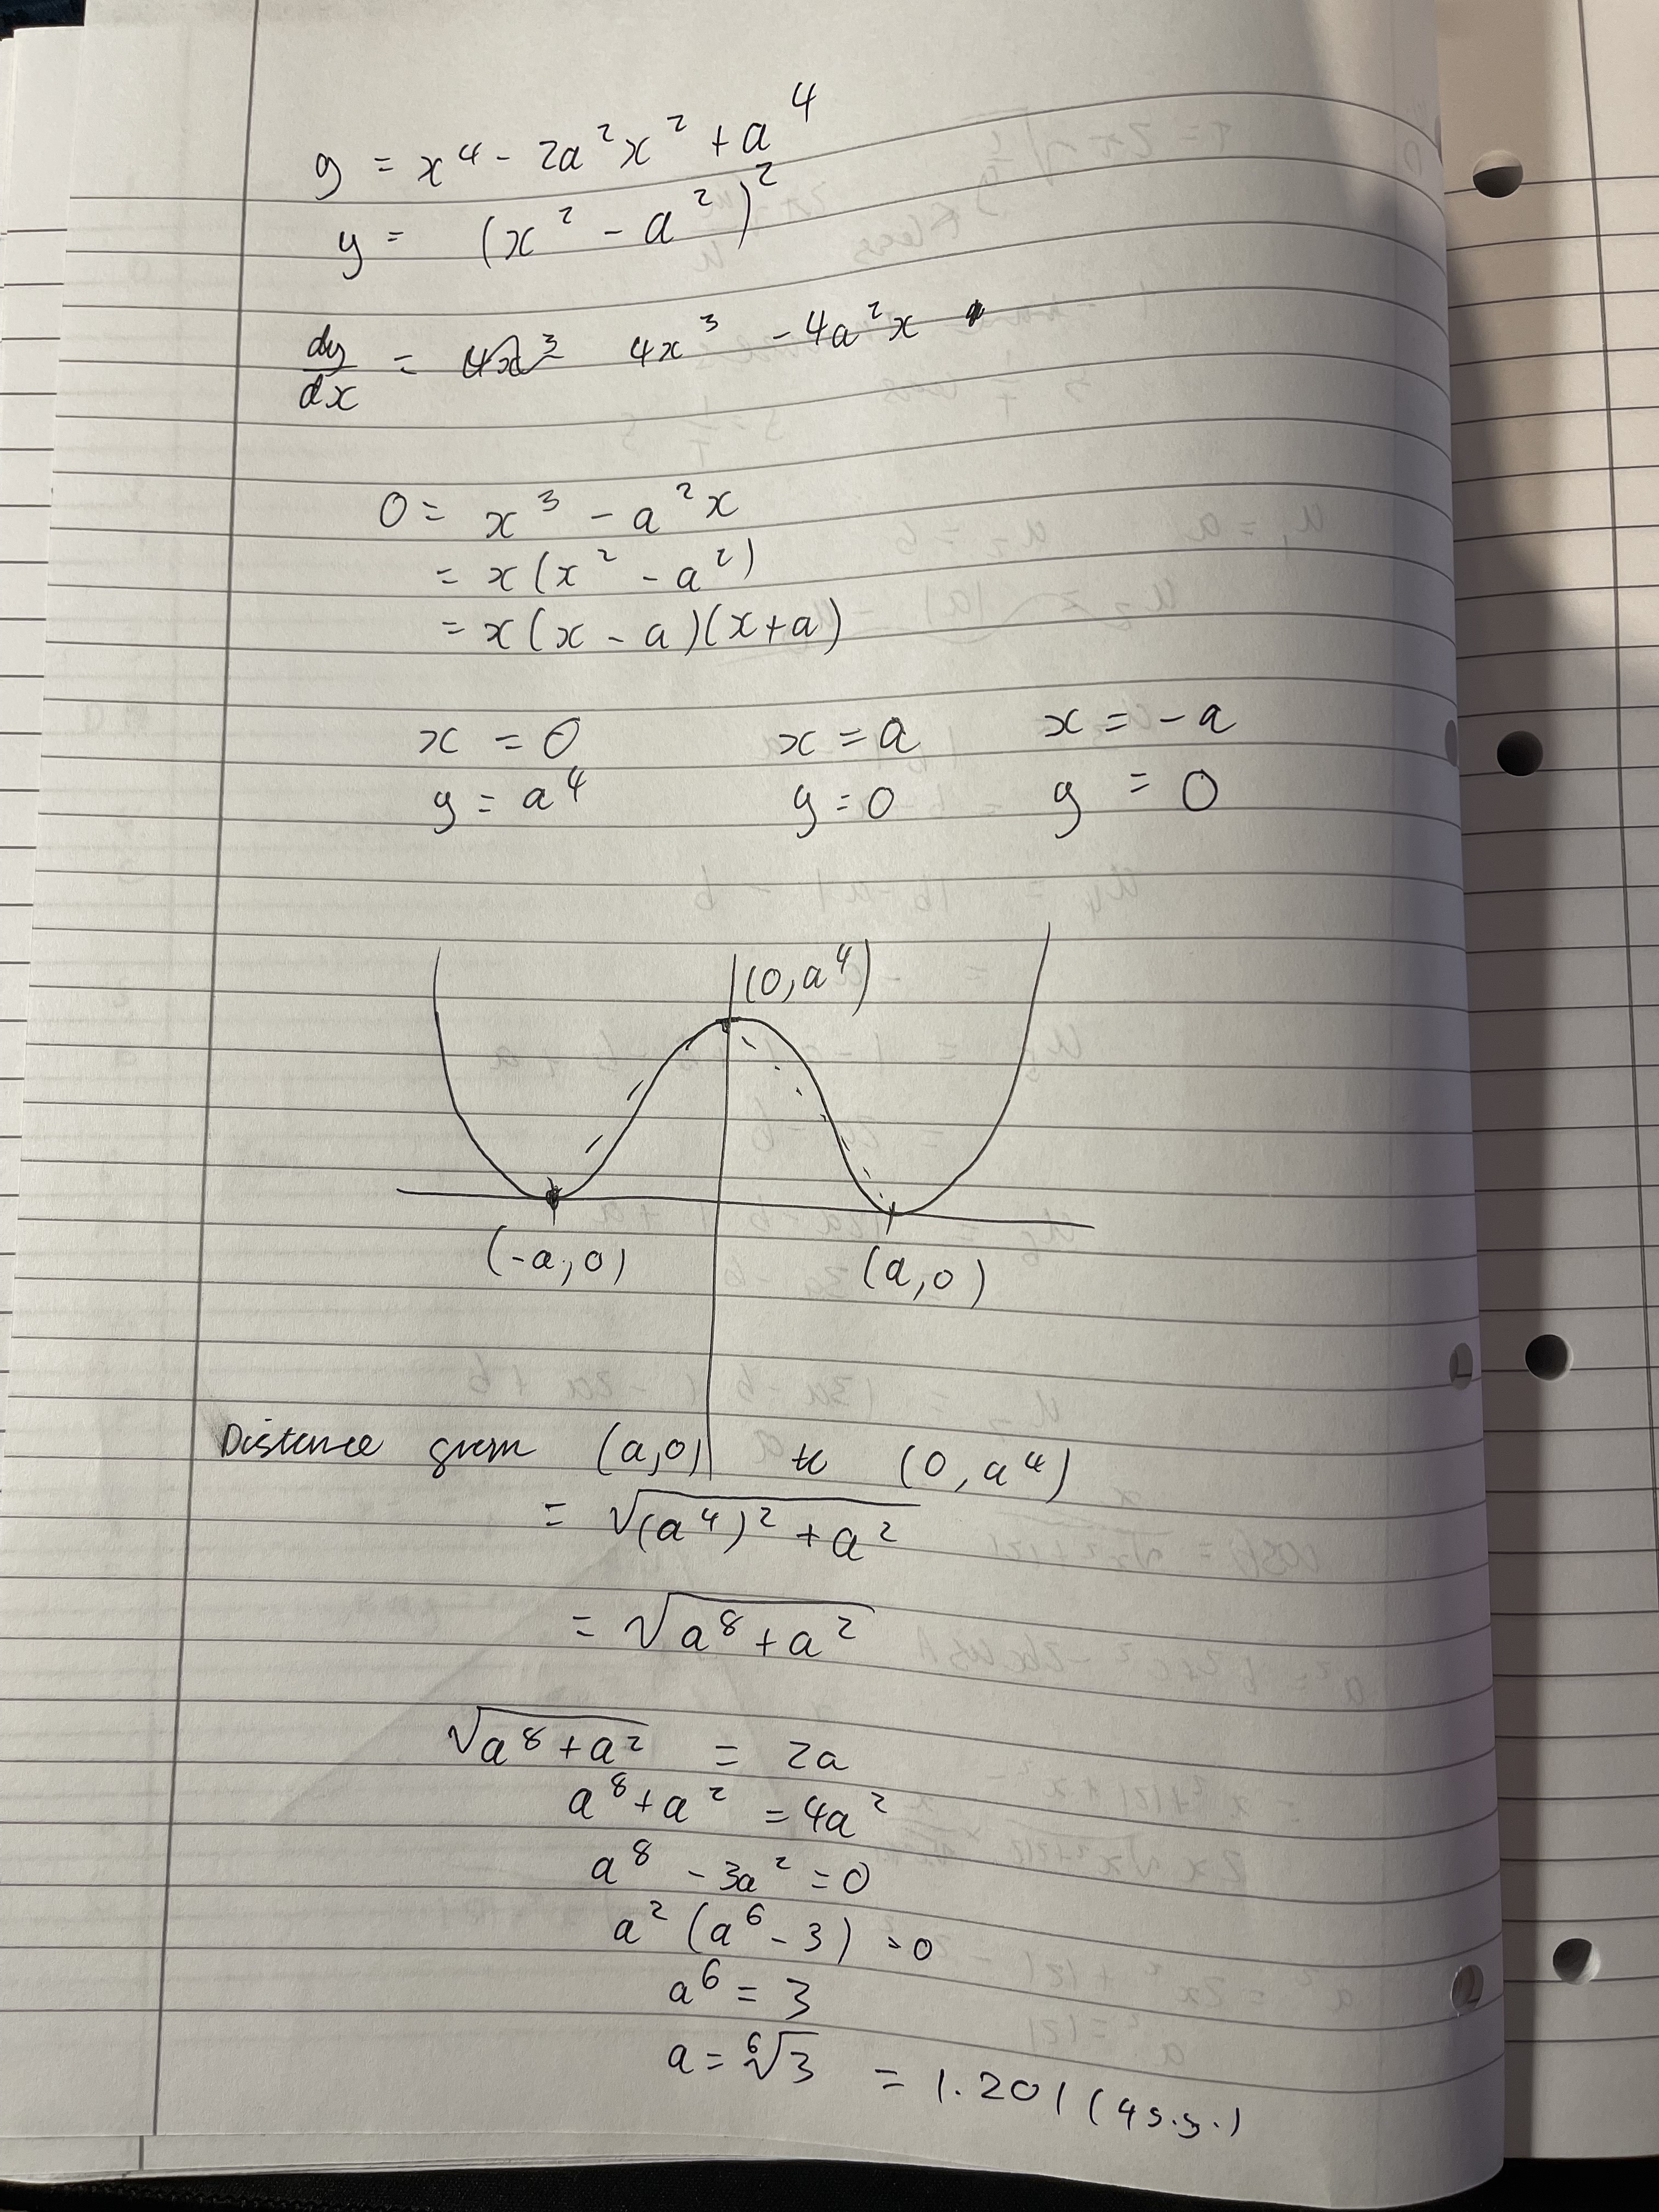 y = x⁴ - 2a²x² + a⁴
y = (x² - a²)²
dy/dx = 4x³ 4x³ - 4a²x
0 = x³ - a²x
= x(x² - a²)
= x(x - a)(x+a)
x = 0 x = a x = -a
y = a⁴ y = 0 y = 0
(0, a⁴)
(-a, 0) (a, 0)
Distance from (a,0) to (0, a⁴)
= √((a⁴)² + a²)
= √(a⁸ + a²)
√(a⁸ + a²) = 2a
a⁸ + a² = 4a²
a⁸ - 3a² = 0
a² (a⁶ - 3) = 0
a⁶ = 3
a = ⁶√3 = 1.201 (4 s.f.)